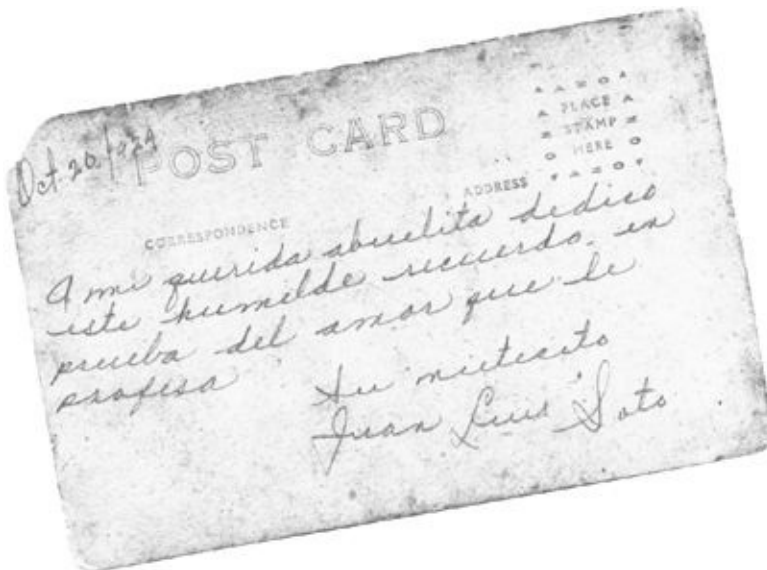 Oct. 20, 1924
POST CARD
AZO
PLACE
STAMP
HERE
AZO
CORRESPONDENCE
ADDRESS
A mi querida abuelita dedico
este humilde recuerdo en
prueba del amor que le
profesa
Su nietecito
Juan Luis Soto